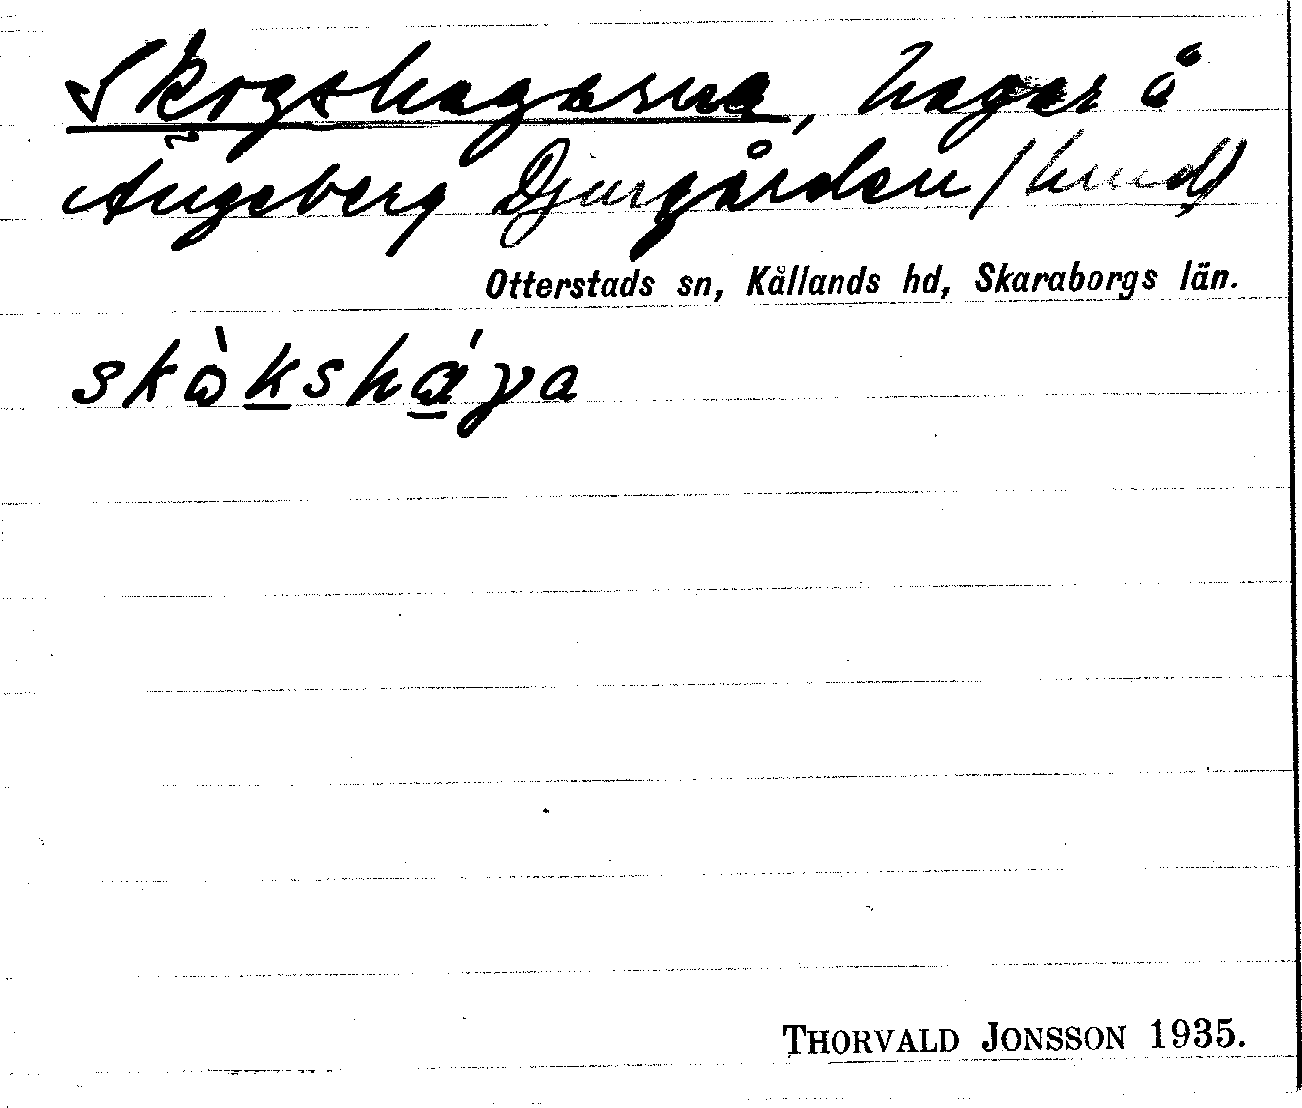 Skogshagarna, hagar å
Ängeberg Djurgården (lund)
Otterstads sn, Kållands hd, Skaraborgs län.
skò̱kshá̱γa
THORVALD JONSSON 1935.